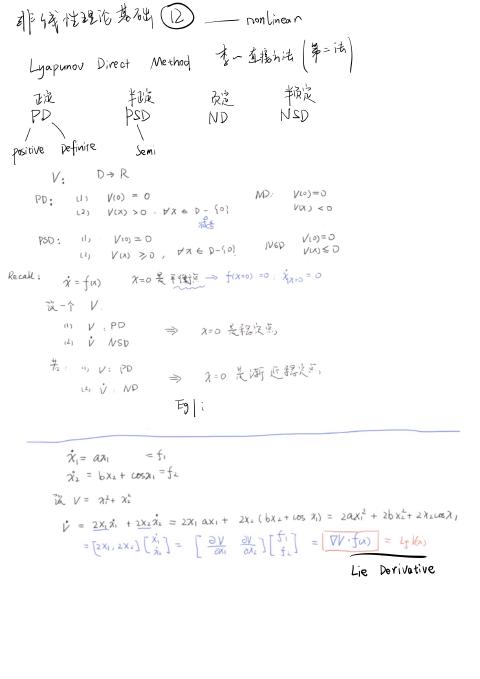 非线性理论基础 ⑫ —— nonlinear
Lyapunov Direct Method 李一直接方法 (第二法)
正定 半正定 负定 半负定
PD PSD ND NSD
positive Definite Semi
V: D → R
PD: (1) V(0) = 0 ND: V(0)=0
(2) V(x) > 0 , ∀x ∈ D - {0} V(x) < 0
减去
PSD: (1) V(0) = 0 NSD V(0)=0
(2) V(x) ≥ 0 , ∀x ∈ D-{0} V(x) ≤ 0
Recall: ẋ = f(x) x=0 是平衡点 → f(x=0) = 0 . ẋ|x=0 = 0
设一个 V.
(1) V : PD ⇒ x=0 是稳定点,
(2) V̇ NSD
(1) V: PD ⇒ x=0 是渐近稳定点,
(2) V̇ : ND
Eg1:
ẋ₁ = ax₁ = f₁
ẋ₂ = bx₂ + cosx₁ = f₂
设 V = x₁² + x₂²
V̇ = 2x₁ẋ₁ + 2x₂ẋ₂ = 2x₁ ax₁ + 2x₂ (bx₂ + cos x₁) = 2ax₁² + 2bx₂² + 2x₂cosx₁
= [2x₁, 2x₂] [ẋ₁ ẋ₂] = [∂V/∂x₁ ∂V/∂x₂] [f₁ f₂] = ∇V·f(x) = Lf V(x)
Lie Derivative